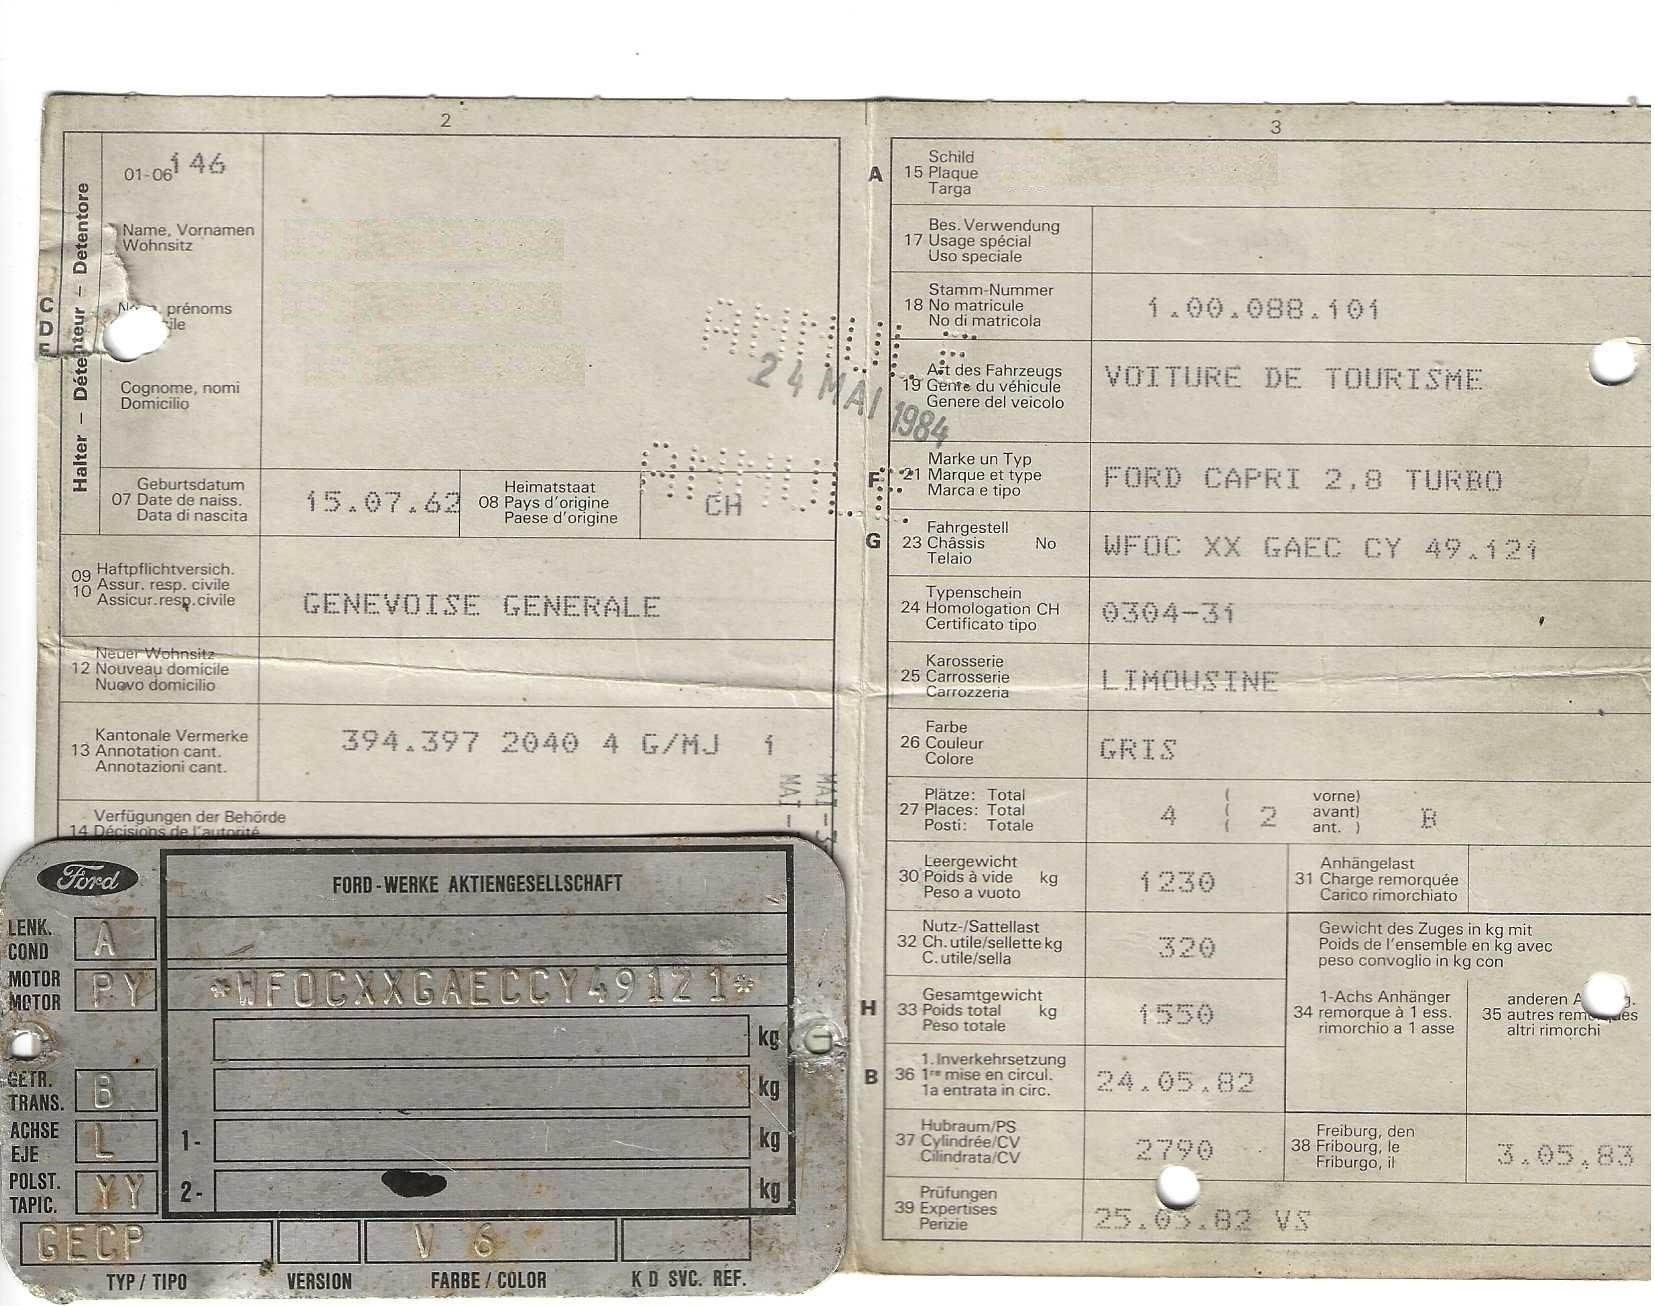 2
01-06 146
Halter – Détenteur – Detentore
Name, Vornamen
Wohnsitz
prénoms
Cognome, nomi
Domicilio
C
D
E
ANNULE
24 MAI 1984
ANNULE
Geburtsdatum
07 Date de naiss.
Data di nascita
15.07.62
Heimatstaat
08 Pays d'origine
Paese d'origine
CH
Haftpflichtversich.
09
10 Assur. resp. civile
Assicur.resp.civile
GENEVOISE GENERALE
Neuer Wohnsitz
12 Nouveau domicile
Nuovo domicilio
Kantonale Vermerke
13 Annotation cant.
Annotazioni cant.
394.397 2040 4 G/MJ 1
MAI
MAI
Verfügungen der Behörde
14 Décisions de l'autorité
3
A
Schild
15 Plaque
Targa
Bes. Verwendung
17 Usage spécial
Uso speciale
Stamm-Nummer
18 No matricule
No di matricola
1.00.088.101
Art des Fahrzeugs
19 Genre du véhicule
Genere del veicolo
VOITURE DE TOURISME
F
Marke un Typ
21 Marque et type
Marca e tipo
FORD CAPRI 2,8 TURBO
G
Fahrgestell
23 Châssis No
Telaio
WFOC XX GAEC CY 49.121
Typenschein
24 Homologation CH
Certificato tipo
0304-31
Karosserie
25 Carrosserie
Carrozzeria
LIMOUSINE
Farbe
26 Couleur
Colore
GRIS
Plätze: Total
27 Places: Total
Posti: Totale
4 ( 2
vorne)
avant)
ant. )
B
Leergewicht
30 Poids à vide kg
Peso a vuoto
1230
Anhängelast
31 Charge remorquée
Carico rimorchiato
Nutz-/Sattellast
32 Ch. utile/sellette kg
C. utile/sella
320
Gewicht des Zuges in kg mit
Poids de l'ensemble en kg avec
peso convoglio in kg con
H
Gesamtgewicht
33 Poids total kg
Peso totale
1550
1-Achs Anhänger
34 remorque à 1 ess.
rimorchio a 1 asse
anderen
35 autres
altri rimorchi
B
1. Inverkehrsetzung
36 1re mise en circul.
1a entrata in circ.
24.05.82
Hubraum/PS
37 Cylindrée/CV
Cilindrata/CV
2790
Freiburg, den
38 Fribourg, le
Friburgo, il
3.05.83
Prüfungen
39 Expertises
Perizie
25.05.82 VS
Ford
FORD-WERKE AKTIENGESELLSCHAFT
LENK.
COND
A
MOTOR
MOTOR
PY
*WFOCXXGAECCY49121*
kg
GETR.
TRANS.
B
kg
ACHSE
EJE
L
1- kg
POLST.
TAPIC.
YY
2- kg
GECP
V 6
TYP / TIPO
VERSION
FARBE / COLOR
K D SVC. REF.